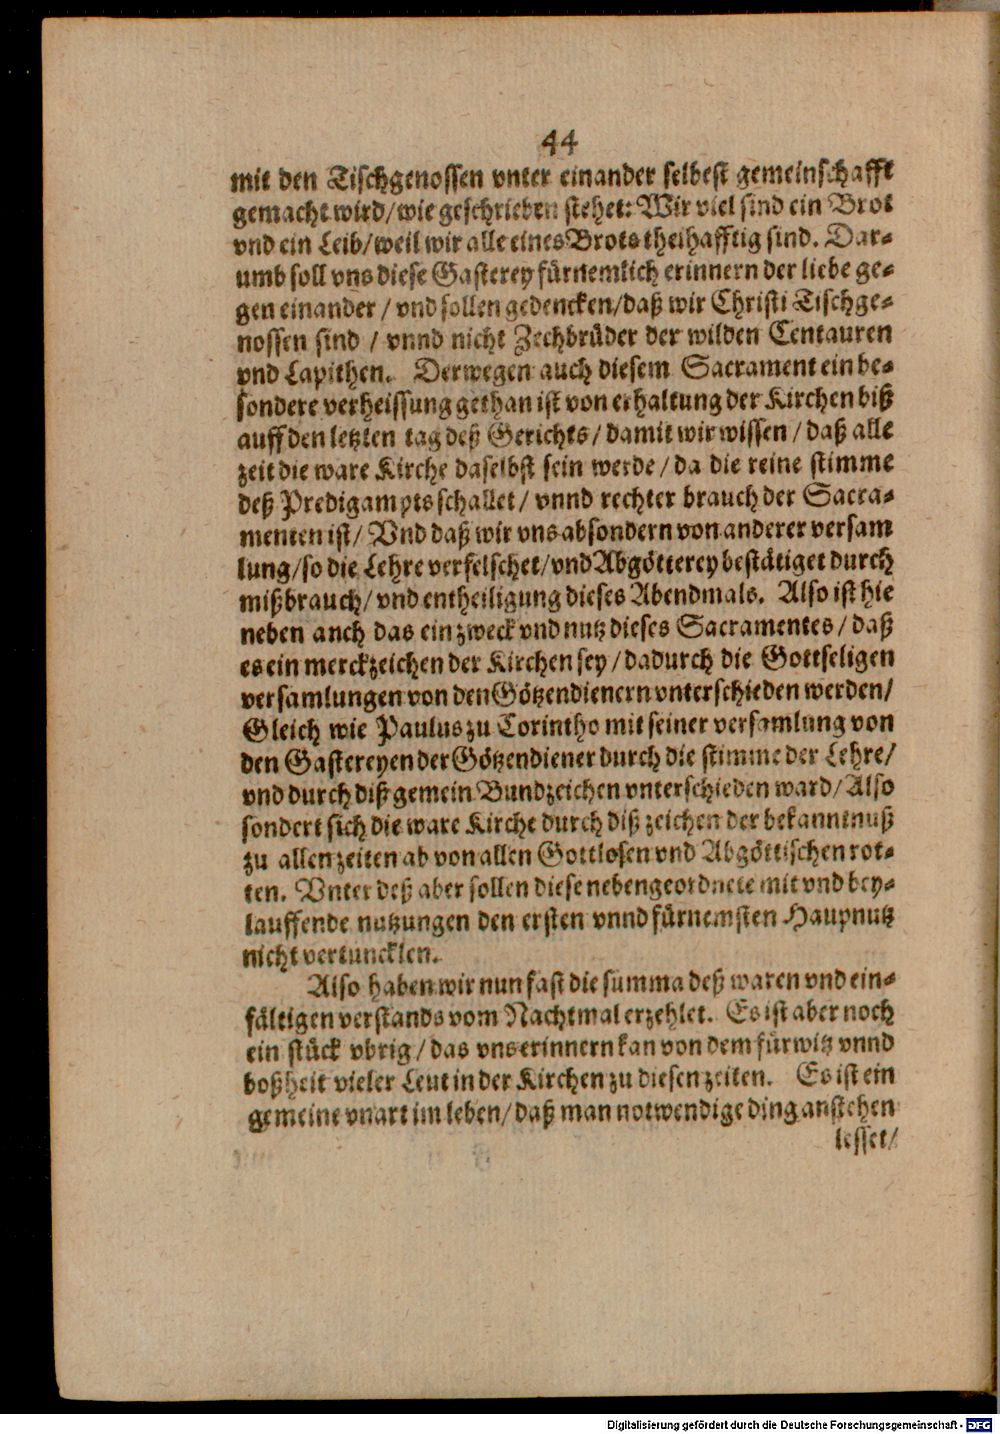 44
mit den Tischgenossen vnter einander selbest gemeinschafft
gemacht wird/wie geschrieben stehet: Wir viel sind ein Brot
vnd ein Leib/weil wir alle eines Brots theihafftig sind. Dar-
umb soll vns diese Gasterey fürnemlich erinnern der liebe ge-
gen einander / vnd sollen gedencken/daß wir Christi Tischge-
nossen sind / vnnd nicht Zechbrüder der wilden Centauren
vnd Lapithen. Derwegen auch diesem Sacrament ein be-
sondere verheissung gethan ist von erhaltung der Kirchen biß
auff den letzten tag deß Gerichts/damit wir wissen/daß alle
zeit die ware Kirche daselbst sein werde/da die reine stimme
deß Predigampts schallet/ vnnd rechter brauch der Sacra-
menten ist/ Vnd daß wir vns absondern von anderer versam
lung/so die Lehre verfelschet/vnd Abgötterey bestätiget durch
mißbrauch/vnd entheiligung dieses Abendmals. Also ist hie
neben anch das ein zweck vnd nutz dieses Sacramentes/daß
es ein merckzeichen der Kirchen sey/dadurch die Gottseligen
versamlungen von den Götzendienern vnterschieden werden/
Gleich wie Paulus zu Corintho mit seiner versamlung von
den Gastereyen der Götzendiener durch die stimme der Lehre/
vnd durch diß gemein Bundzeichen vnterschieden ward/Also
sondert sich die ware Kirche durch diß zeichen der bekanntnuß
zu allen zeiten ab von allen Gottlosen vnd Abgöttischen rot-
ten. Vnter deß aber sollen diese nebengeordnete mit vnd bey-
lauffende nutzungen den ersten vnnd fürnemsten Haupnutz
nicht vertuncklen.
Also haben wir nun fast die summa deß waren vnd ein-
fältigen verstands vom Nachtmal erzehlet. Es ist aber noch
ein stück vbrig/das vns erinnern kan von dem fürwitz vnnd
boßheit vieler Leut in der Kirchen zu diesen zeiten. Es ist ein
gemeine vnart im leben/daß man notwendige ding anstehen
lesset/
Digitalisierung gefördert durch die Deutsche Forschungsgemeinschaft - DFG